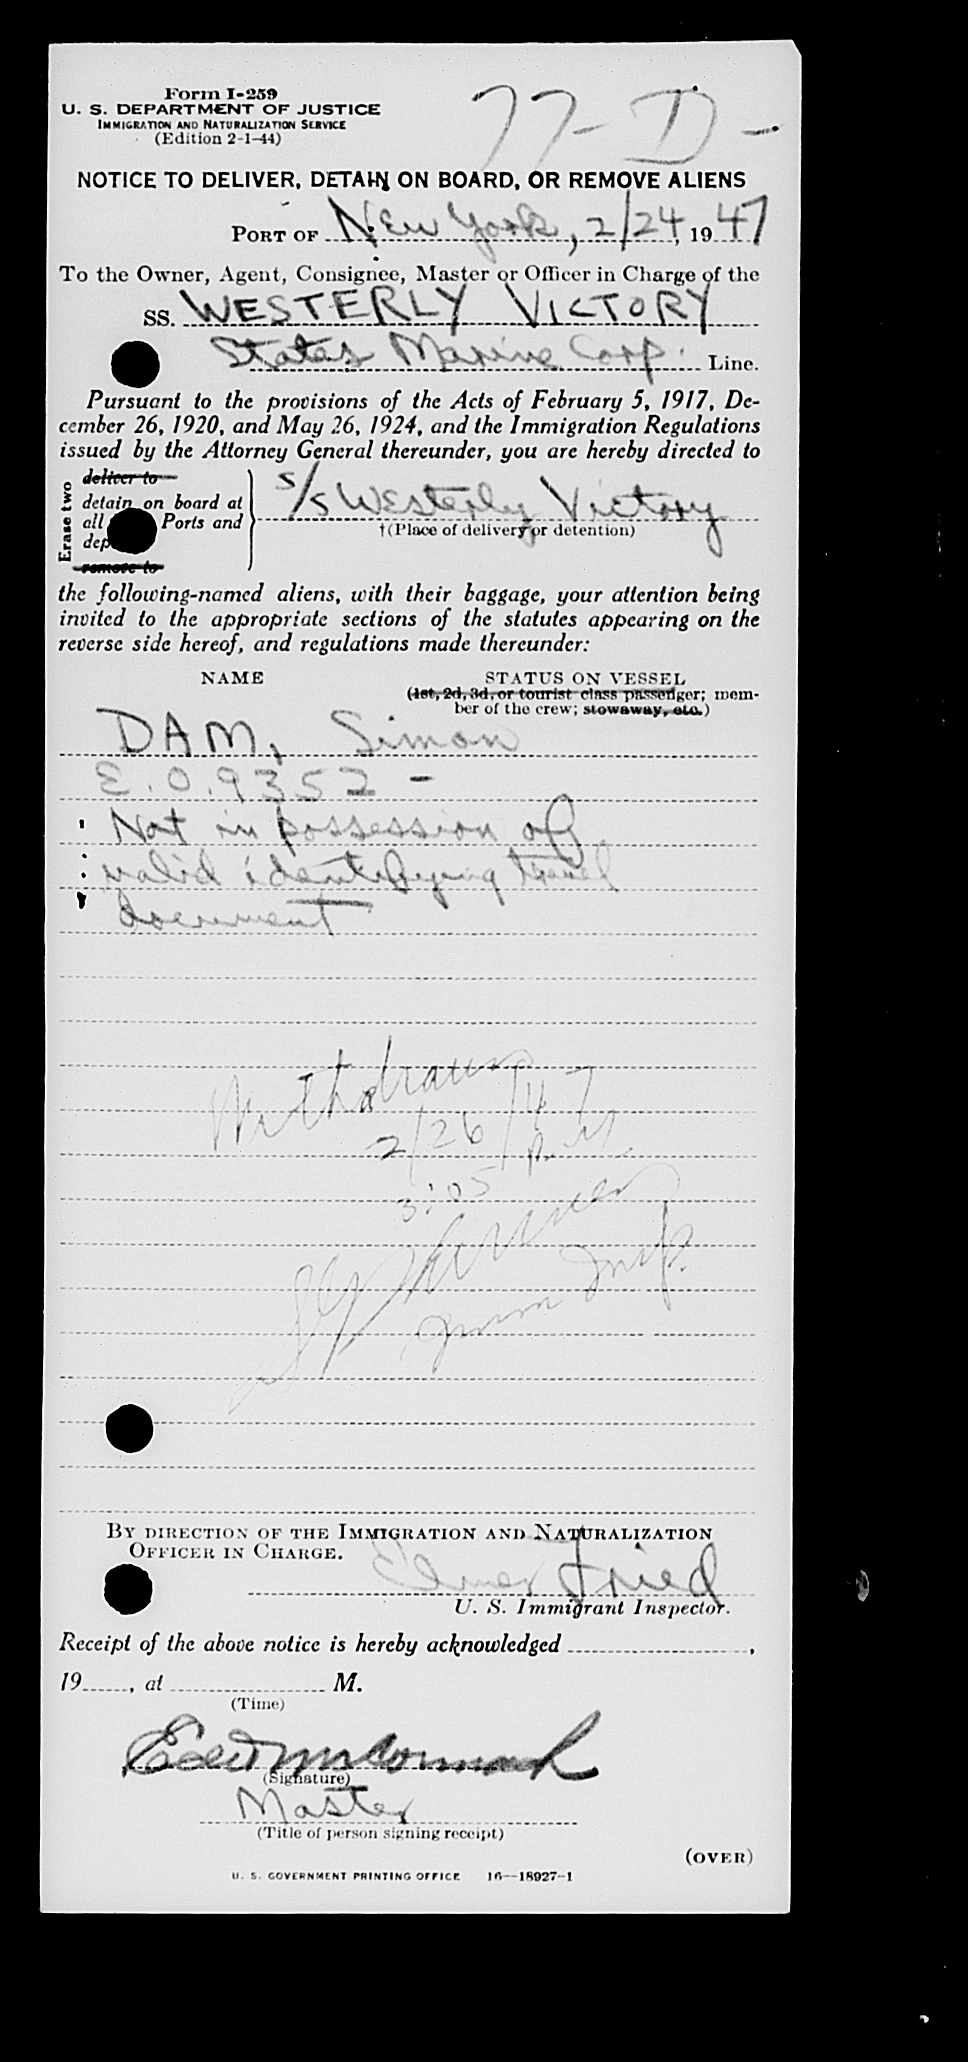 Form I-259
U. S. DEPARTMENT OF JUSTICE
IMMIGRATION AND NATURALIZATION SERVICE
(Edition 2-1-44)
77-D-
NOTICE TO DELIVER, DETAIN ON BOARD, OR REMOVE ALIENS
PORT OF New York, 2/24, 1947
To the Owner, Agent, Consignee, Master or Officer in Charge of the
SS. WESTERLY VICTORY
States Marine Corp. Line.
Pursuant to the provisions of the Acts of February 5, 1917, De-
cember 26, 1920, and May 26, 1924, and the Immigration Regulations
issued by the Attorney General thereunder, you are hereby directed to
Erase two
deliver to
detain on board at
all Ports and
dep
remove to
s/s Westerly Victory
†(Place of delivery or detention)
the following-named aliens, with their baggage, your attention being
invited to the appropriate sections of the statutes appearing on the
reverse side hereof, and regulations made thereunder:
NAME STATUS ON VESSEL
(1st, 2d, 3d, or tourist class passenger; mem-
ber of the crew; stowaway, etc.)
DAM, Simon
E.O. 9352 -
Not in possession of
valid identifying travel
document
Withdrawn
2/26/47
3:05 P.M.
Imm Insp.
BY DIRECTION OF THE IMMIGRATION AND NATURALIZATION
OFFICER IN CHARGE.
Elmer Fried
U. S. Immigrant Inspector.
Receipt of the above notice is hereby acknowledged ,
19 , at M.
(Time)
Edw McCormack
(Signature)
Master
(Title of person signing receipt)
(OVER)
U. S. GOVERNMENT PRINTING OFFICE 16—18927-1